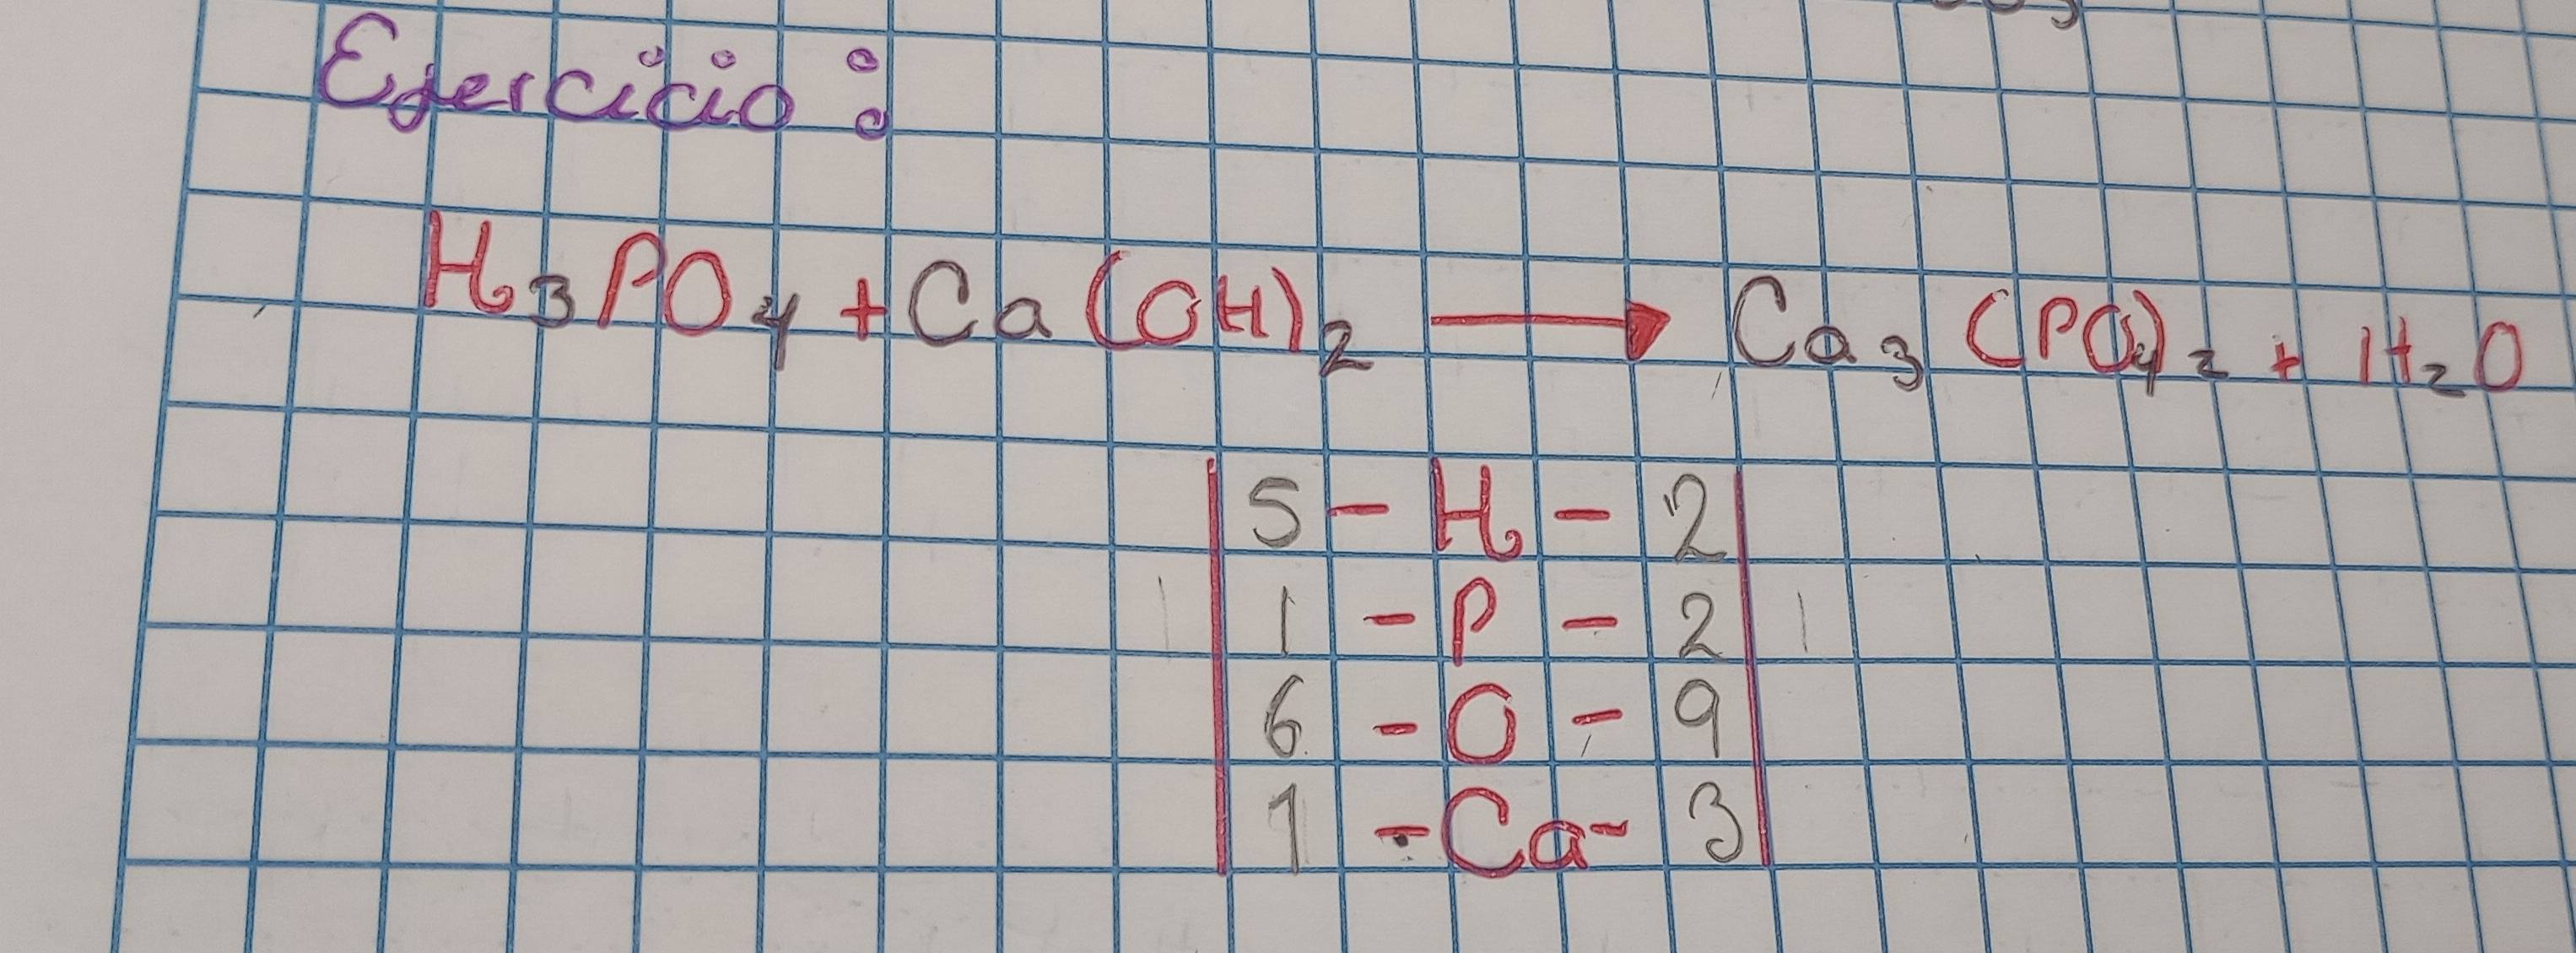 Ejercicio:
H₃PO₄ + Ca(OH)₂ → Ca₃(PO₄)₂ + H₂O
5 - H - 2
1 - P - 2
6 - O - 9
1 - Ca - 3